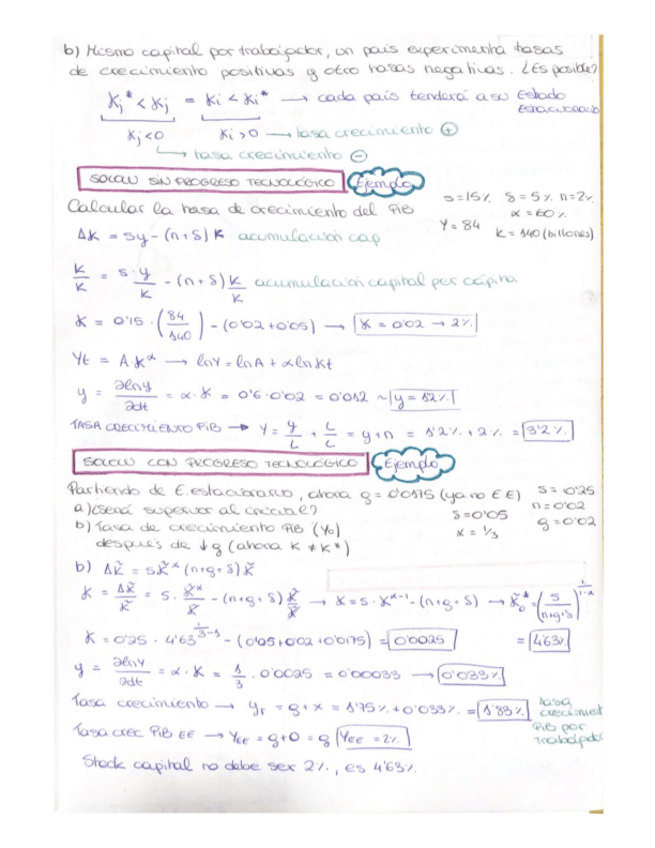 b) Mismo capital por trabajador, un país experimenta tasas
de crecimiento positivas y otro tasas negativas. ¿Es posible?
Kj* < Kj = Ki < Ki* → cada país tenderá a su Estado
Estacionario
Kj<0 Ki>0 → tasa crecimiento +
→ tasa crecimiento −
SOLOW SIN PROGRESO TECNOLÓGICO Ejemplo
s=15% δ=5% n=2%
Calcular la tasa de crecimiento del PIB
α=60%
Y=84 K=140 (billones)
ΔK = sy − (n+δ)K acumulación cap
K/K = s·y/K − (n+δ)K/K acumulación capital per cápita
K = 0'15 · (84/140) − (0'02+0'05) → K=0'02 → 2%
Yt = A·K^α → lnY = lnA + αlnKt
y = ∂lnY/∂dt = α·K = 0'6·0'02 = 0'012 ~ y=1'2%
TASA CRECIMIENTO PIB → Y = y/L + L/L = y+n = 1'2% + 2% = 3'2%
SOLOW CON PROGRESO TECNOLÓGICO Ejemplo
Partiendo de E.estacionario, ahora g=0'0175 (ya no EE) s=0'25
a) ¿será superior al inicial? δ=0'05 n=0'02
b) Tasa de crecimiento PIB (Y0) α=1/3 g=0'02
después de ↓g (ahora K≠K*)
b) ΔK̃ = sK̃^α (n+g+δ)K̃
K = ΔK̃/K̃ = s·K̃^α/K̃ − (n+g+δ)K̃/K̃ → K=s·K^α-1 − (n+g+δ) → K̃0* = (s/n+g+δ)^1/1-α
K = 0'25 · 4'63^1/3-1 − (0'05+0'02+0'0175) = 0'0025 = 4'63
y = ∂lnY/∂dt = α·K = 1/3 · 0'0025 = 0'00033 → 0'033%
Tasa crecimiento → yr = g+x = 1'75% + 0'033% = 1'83% tasa
crecimient
PIB por
trabajador
Tasa crec PIB EE → YEE = g+0 = g YEE=2%
Stock capital no debe ser 2%, es 4'63%